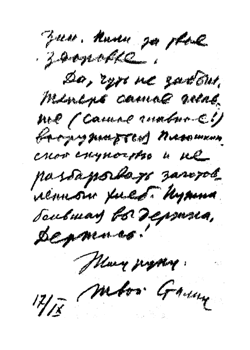 Зин. Пили за твое
здоровье.
Да, чуть не забыл.
Теперь самое глав-
ное (самое главное!)
вооружиться Плюшкин-
ской скупостью и не
разбазаривать заготов-
ленный хлеб. Нужна
большая выдержка.
Держись!
Жму руку.
Твой Сталин
17/IX